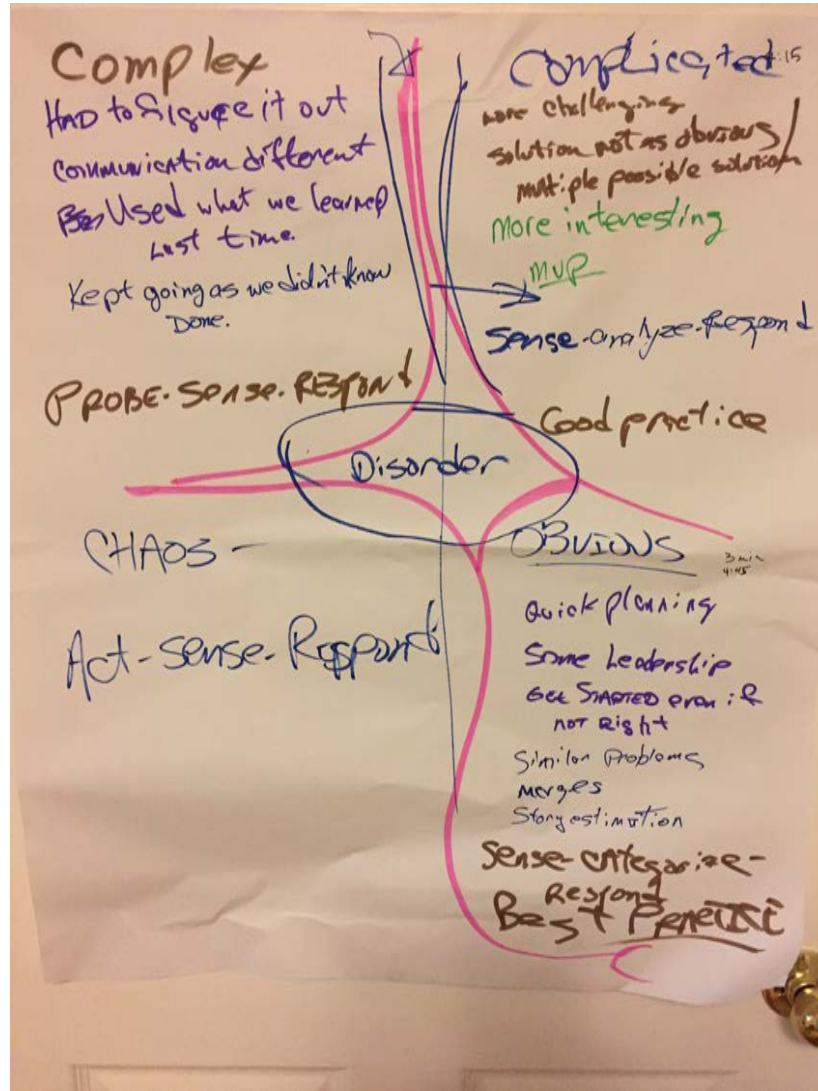 Complex
HAD to figure it out
communication different
Used what we learned
Last time.
Kept going as we didn't know
Done.
PROBE-Sense-RESPOND
Complicated :15
more challenging
solution not as obvious/
multiple possible solutions
More interesting
MVP
Sense-analyze-Respond
Good practice
Disorder
CHAOS -
Act-Sense-Respond
OBVIOUS
3 min
4:45
Quick planning
Some Leadership
Get STARTED even if
NOT Right
Similar Problems
Merges
Story estimation
Sense-categorize-
Respond
Best Practice